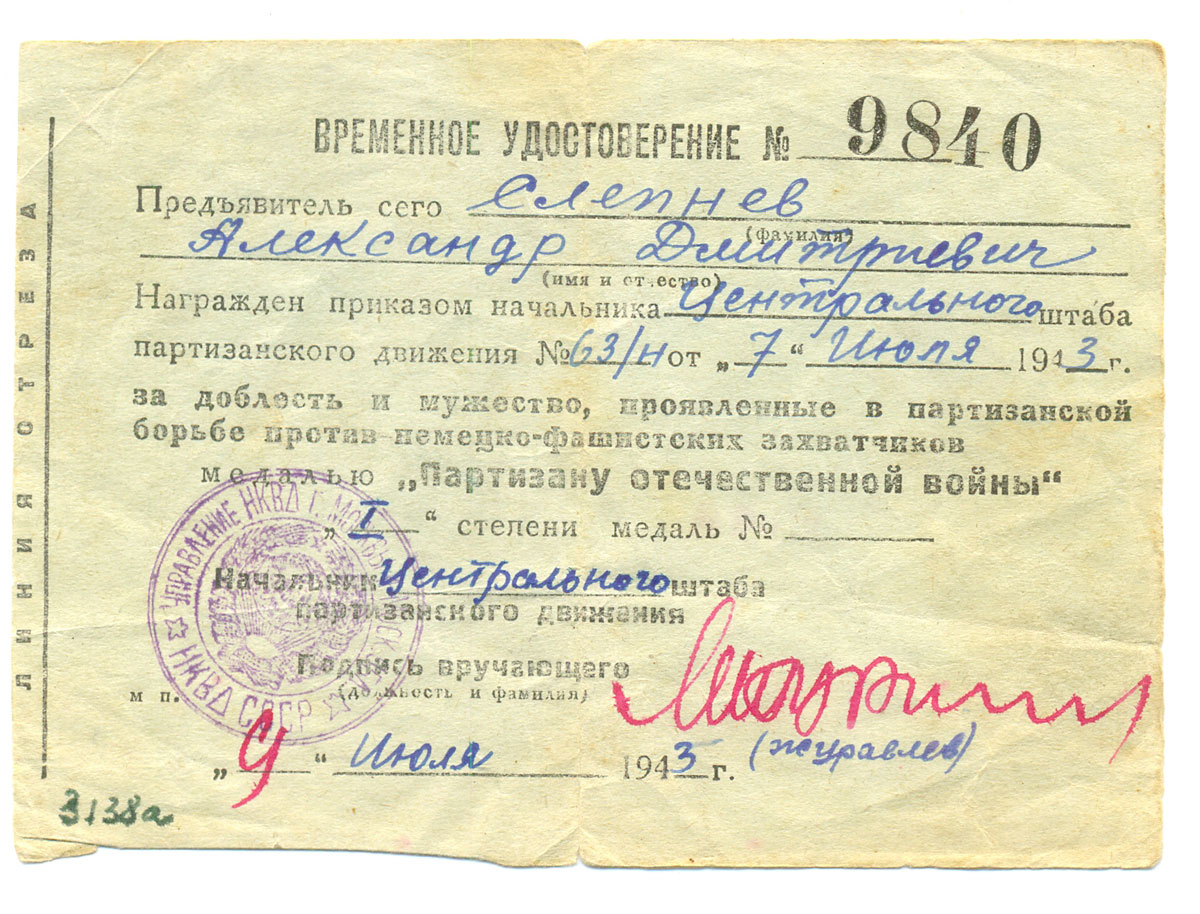 ВРЕМЕННОЕ УДОСТОВЕРЕНИЕ № 9840
Предъявитель сего Слепнев
(фамилия)
Александр Дмитриевич
(имя и отчество)
Награжден приказом начальника Центрального штаба
партизанского движения № 63/н от „7“ Июля 1943 г.
за доблесть и мужество, проявленные в партизанской
борьбе против немецко-фашистских захватчиков
медалью „Партизану отечественной войны“
„I“ степени медаль №
Начальник Центрального штаба
партизанского движения
Подпись вручающего
(должность и фамилия)
м п.
„9“ Июля 1943 г. (Журавлев)
3138а
ЛИНИЯ ОТРЕЗА
УПРАВЛЕНИЕ НКВД Г.
НКВД СССР